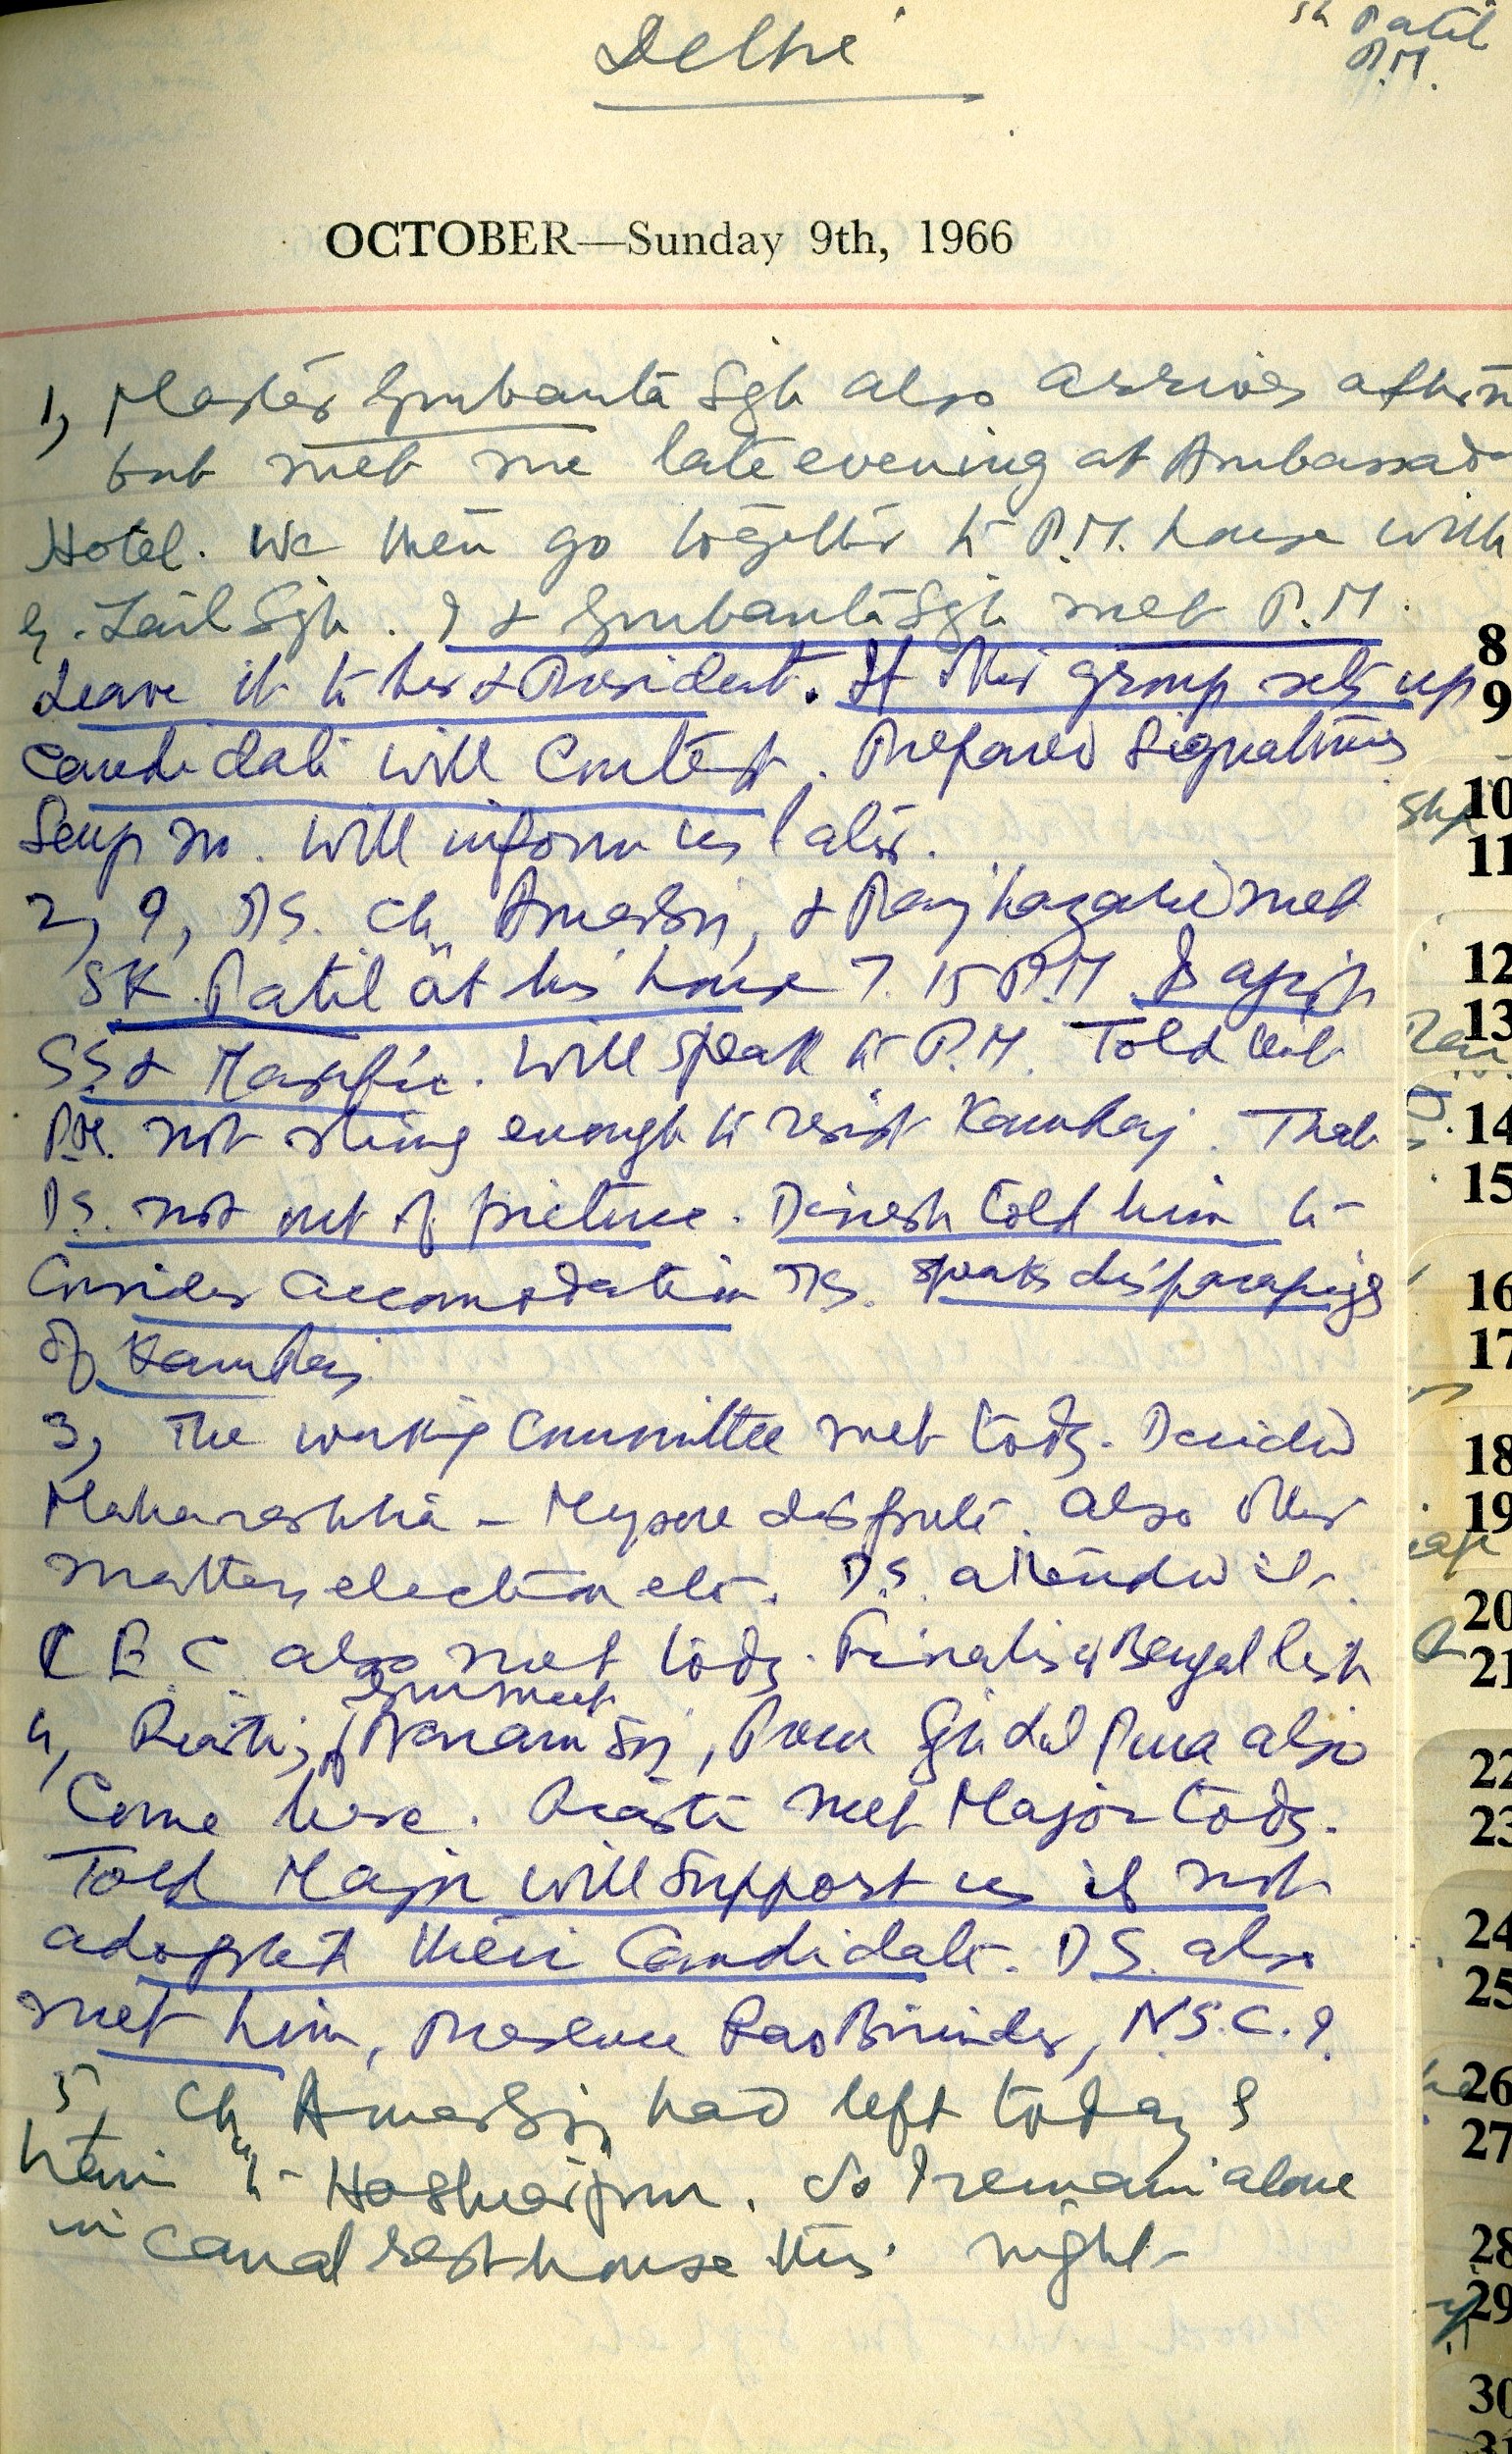 Delhi
Sh Patil
P.M.
OCTOBER—Sunday 9th, 1966
1, Master Gurbanta Sgh also arrives
but met me late evening at Ambassador
Hotel. We then go together to P.M. house with
G. Zail Sgh. I & Gurbanta Sgh met P.M.
Leave it to her & President. If other group sets up
candidate will Contest. Prepared signatures
. Will inform us later.
2, I, DS. Ch Amar Sgj, & met
SK. Patil at his house 7.15 P.M. Is agst
SS & . Will speak to P.M. Told that
P.M. not strong enough to resist Kamraj. That
DS. not out of picture. Dinesh told him to
Consider accomodation DS. speaks disparagingly
of Kamraj
3, The working Committee met today. Decided
Maharashtra - Mysore dispute. also other
matters election etc. D.S. attended it.
C E C also met today. Finalised Bengal list
Gurmeet
4, Riasti, Sgj, also
Come here. Riasti met Major today.
Told Major will support us if not
adopted their Candidate. DS. also
met him, presence Rao Birinder, N.S.C. I.
5, Ch Amar Sgj had left today &
to Hoshiarpur. So I remain alone
in canal rest house this night
8
9
10
11
12
13
14
15
16
17
18
19
20
21
22
23
24
25
26
27
28
29
30
31